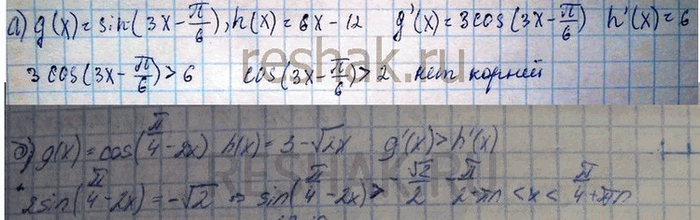 а) g(x)=sin(3x-π/6), h(x)=6x-12 g'(x)=3cos(3x-π/6) h'(x)=6
3cos(3x-π/6)>6 cos(3x-π/6)>2 нет корней
reshak.ru
б) g(x)=cos(π/4-2x) h(x)=3-√2x g'(x)>h'(x)
2sin(π/4-2x)=-√2 ⇒ sin(π/4-2x)>-√2/2 π/2-πn<x<π/4+πn
RESHAK.RU